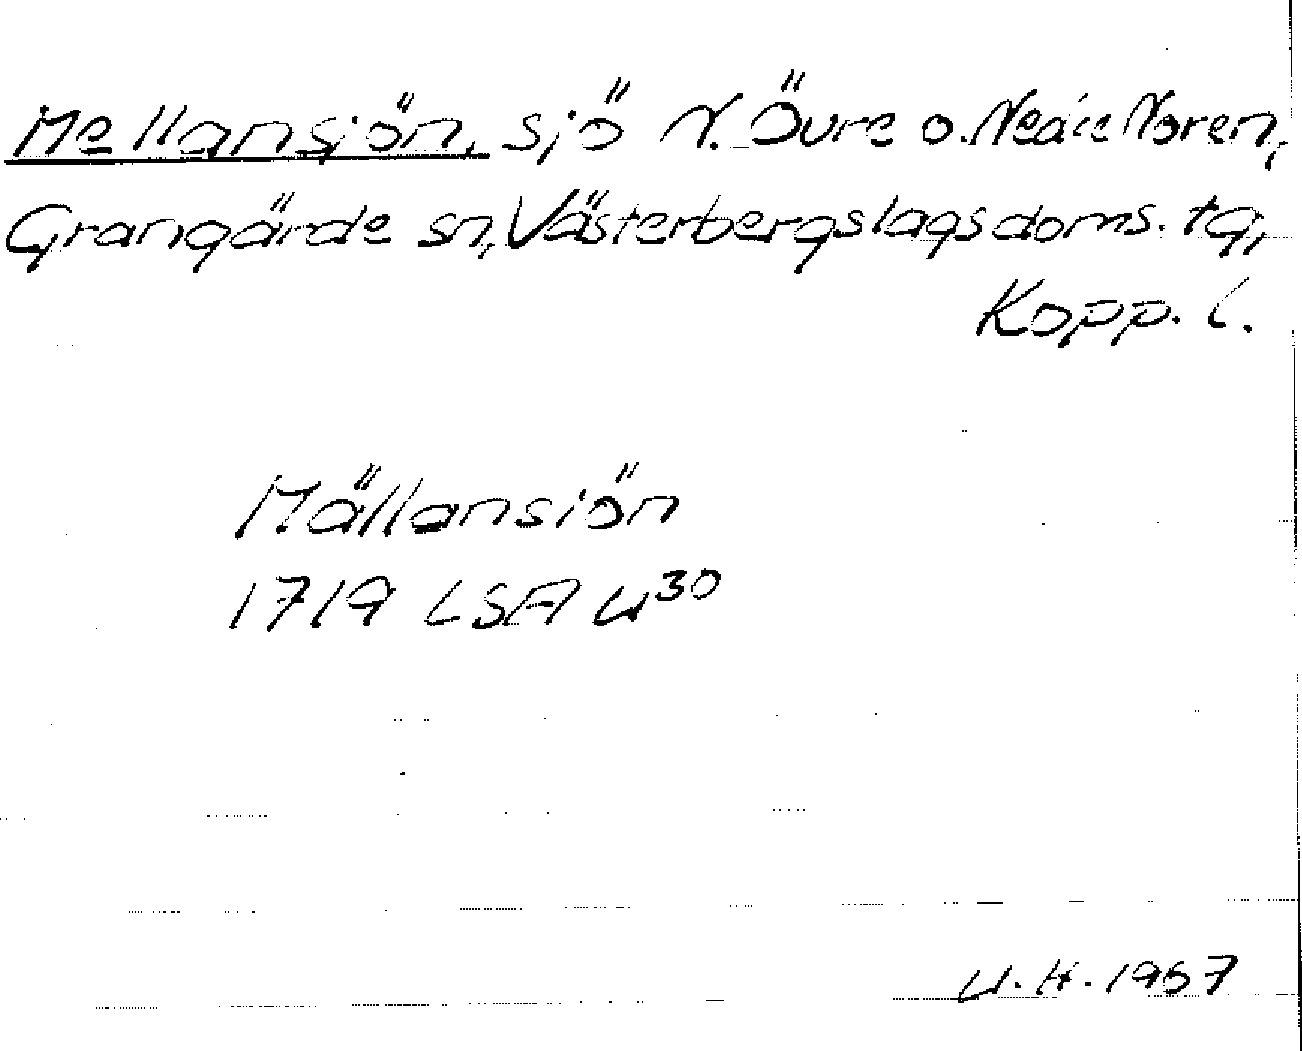 Mellansjön, sjö N. Övre o. Nedre Noren,
Grangärde sn, Västerbergslags doms. tg,
Kopp. l.
Mällansiön
1719 LSA U³⁰
U.H. 1967